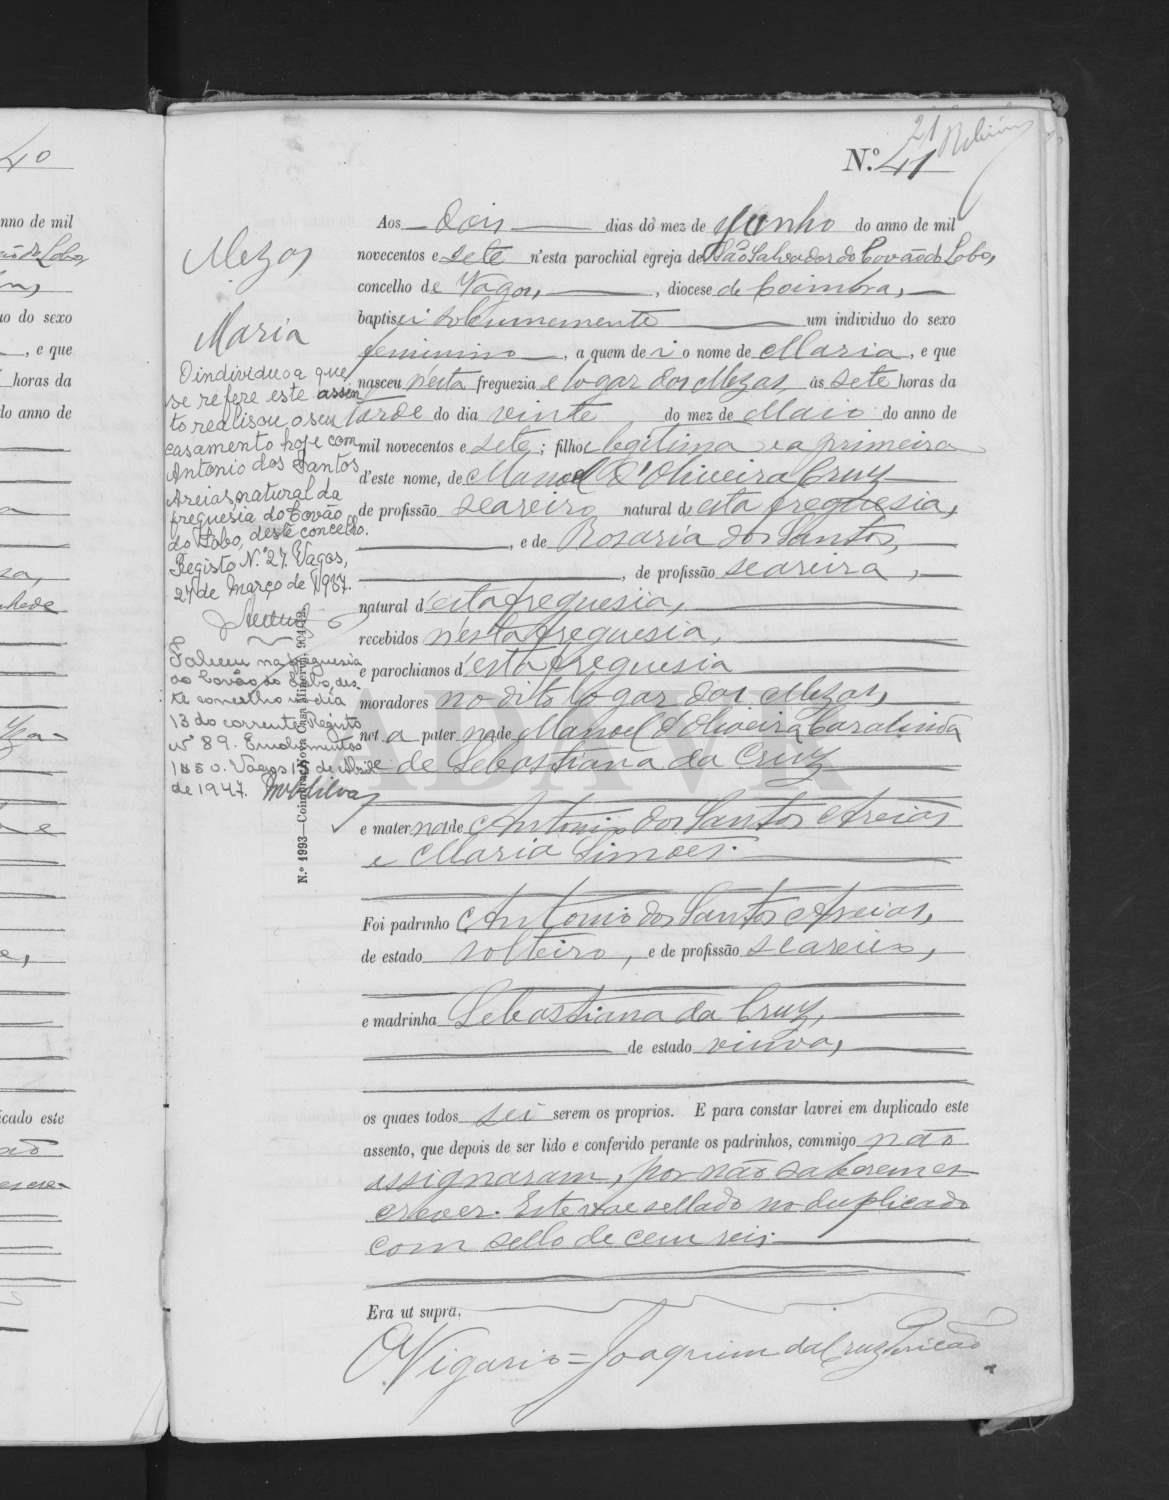 21
N.º 41
Mezas
Maria
O individuo a que
se refere este assen
to realisou o seu
casamento hoje com
Antonio dos Santos
Areias, natural da
freguesia do Covão
do Lobo, deste concelho.
Registo N.º 27. Vagos,
24 de Março de 1937.
Faleceu na freguesia
do Covão do Lobo, des
te concelho no dia
13 do corrente. Registo
nº 89. Emolumentos
1$50. Vagos 15 de Abril
de 1947. Silva
N.º 1993—Coimbra, Nova Casa Minerva,
Aos dois dias do mez de Junho do anno de mil
novecentos e sete n'esta parochial egreja de São Salvador do Covão do Lobo,
concelho de Vagos, , diocese de Coimbra,
baptisei solemnemente um individuo do sexo
feminino , a quem dei o nome de Maria , e que
nasceu n'esta freguezia e logar das Mezas ás sete horas da
tarde do dia vinte do mez de Maio do anno de
mil novecentos e sete ; filho legitima e a primeira
d'este nome, de Manoel d'Oliveira Cruz
de profissão seareiro natural d'esta freguesia,
, e de Rosaria dos Santos,
, de profissão seareira ,
natural d'esta freguesia,
recebidos n'esta freguesia,
e parochianos d'esta freguesia
moradores no dito logar das Mezas,
neta paterna de Manoel d'Oliveira Caralinda
e de Sebastiana da Cruz
e materna de Antonio dos Santos Areias
e Maria Simões.
Foi padrinho Antonio dos Santos Areias,
de estado solteiro, e de profissão seareiro,
e madrinha Sebastiana da Cruz,
de estado viuva,
os quaes todos sei serem os proprios. E para constar lavrei em duplicado este
assento, que depois de ser lido e conferido perante os padrinhos, commigo não
assignaram, por não saberem es
crever. Este vae sellado no duplicado
com sello de cem reis.
Era ut supra.
O Vigario = Joaquim da Cruz
ADAVR
40
nno de mil
do sexo
, e que
horas da
do anno de
icado este